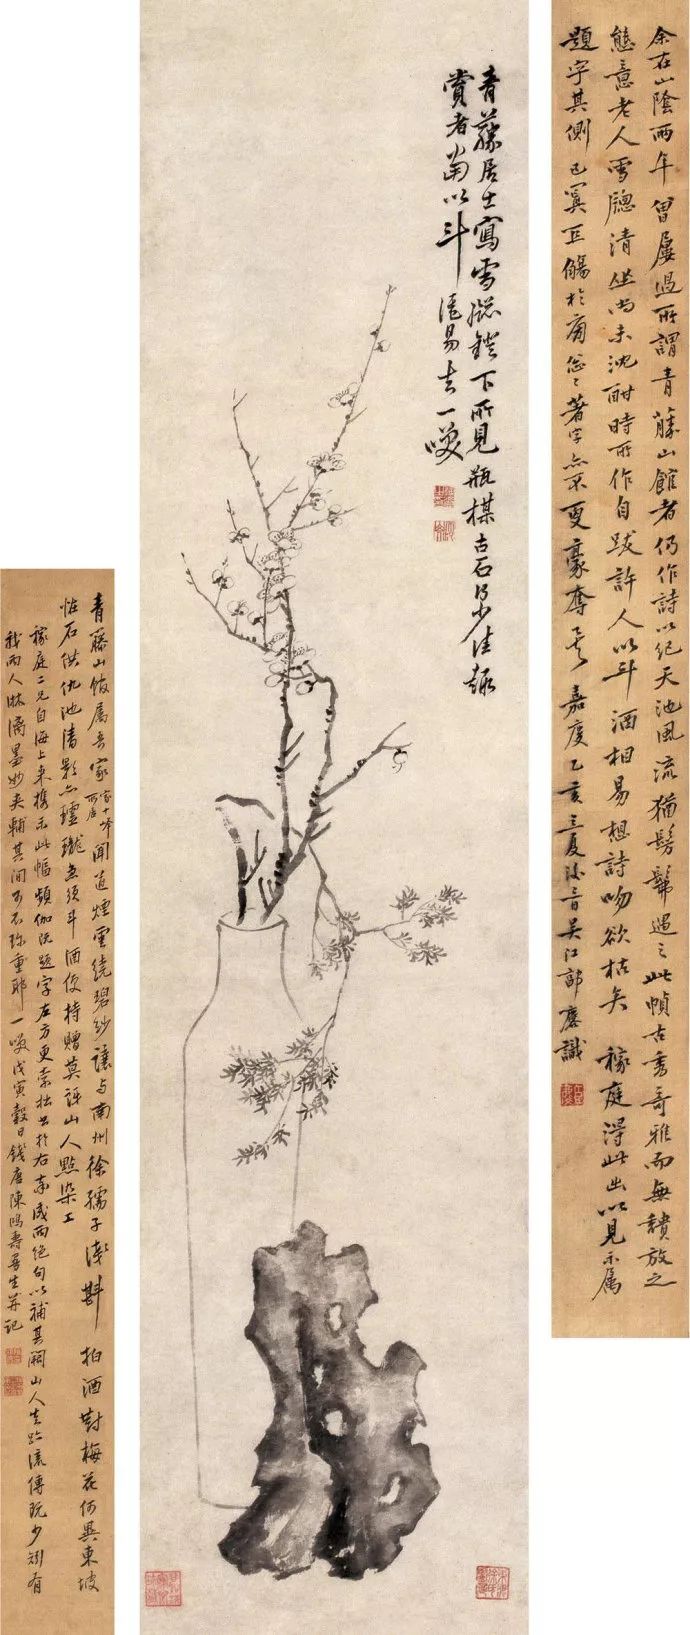 余在山陰兩年曾屢過所謂青藤山館者仍作詩以紀天池風流猶髣髴遇之此幀古秀奇雅而無穨放之
態意老人雪牕清坐尚未沈酣時所作自跋許人以斗酒相易想詩吻欲枯矣稼庭得此出以見示屬
題字其側已冥巨觴於前忽著字亦不更豪奪矣嘉慶乙亥三夏吳江郭麐識
青藤居士寫雪牕鐙下所見瓶楳古石得少佳趣
賞者當以斗酒易去一噱
青藤山館屬吾家家十峰所居聞道煙雲繞碧紗讓与南州徐孺子淺斟
拍酒對梅花何異東坡
怪石供仇池清影亦瓏瓏無須斗酒便持贈莫訝山人點染工
稼庭二兄自海上來攜示此幅頻伽既題字左方更索拙書於右率成兩絕句以補其闕山人真跡流傳既少矧有
我兩人淋漓墨妙夾輔其間可不珍重耶一噱戊寅穀日錢唐陳鴻壽曼生并記